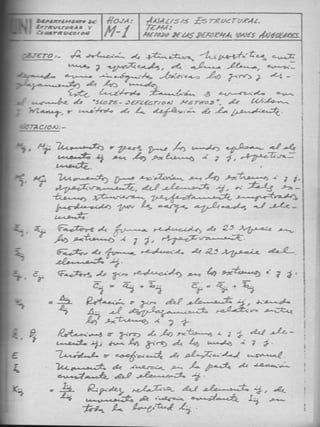 UNI
DEPARTAMENTO DE
ESTRUCTURAS Y
CONSTRUCCION
HOJA:
M-1
ANALISIS ESTRUCTURAL.
TEMA:
METODO DE LAS DEFORMACIONES ANGULARES.
OBJETO:- La solución de estructuras hiperestáticas, conti-
nuas y aporticadas, de alma llena, consi-
derando como incógnitas básicas los giros y des-
plazamientos de los nudos.
Este método también es conocido con
el nombre de "SLOPE-DEFLECTION METHOD", de Wilson
y Maney, o método de la deflexión de la pendiente.
NOTACION:-
Momentos o pares que los nudos aplican al ele-
mento ij en los extremos i y j, respectiva-
mente.
Momentos que existirían en los extremos i y j,
respectivamente, del elemento ij, si tales ex-
tremos estuvieran perfectamente empotrados
producidos por las cargas aplicadas al ele-
mento.
Factores de forma reducidos de 2ª especie en
los extremos i y j, respectivamente.
Factor de forma reducido de 2ª especie del
elemento ij.
Factores de giro reducidos en los extremos i y j.
Rotación o giro del elemento ij, siendo
el desplazamiento relativo entre
los extremos i y j.
Rotaciones o giros de los extremos i y j del ele-
mento ij; son los giros de los nudos i y j.
E Módulo o coeficiente de elasticidad normal.
Momento de inercia en la parte de sección
constante del elemento ij.
Rigidez relativa del elemento ij, de
momento de inercia constante en
toda la longitud